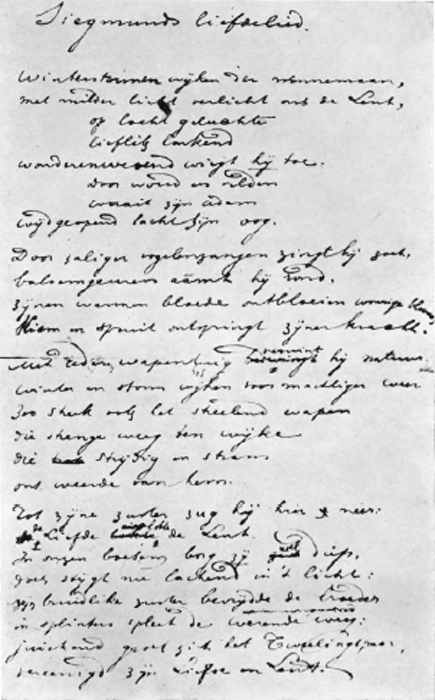 Siegmunds liefdelied.
Winterstormen wijken der wonnemaan,
met milder licht verlicht ons de Lent,
op locht geluchte
lieflik lonkend
wonderenwevend wiegt hij toe.
Door woud en velden
waait zijn adem
wijdgeopend lacht zijn oog.
Door zaliger vogelenzangen zingt hij zoet,
balsemgeuren aâmt hij rond,
zijnen warmen bloede ontbloeien wonnige bloemen
Kiem en spruit ontspringt zijner kracht.
Met wapentuig hij natuur
winter en storm wijken voor machtiger weer
zoo sterk ook let stralend wapen
die strenge weeg ten wijke
die strijdig en stram
ons weerde van hem.
Tot zijne zuster zug hij hier neer:
de Liefde de Lent.
In onzen boezem borg zij diep,
zoo stijgt nu lachend in 't licht:
zijn bruidlike zuster bevrijdde de broeder
in splinters spleet de werende weeg:
juichend groet zich het Tweelingspaar,
vereenigd zijn Liefde en Lent.